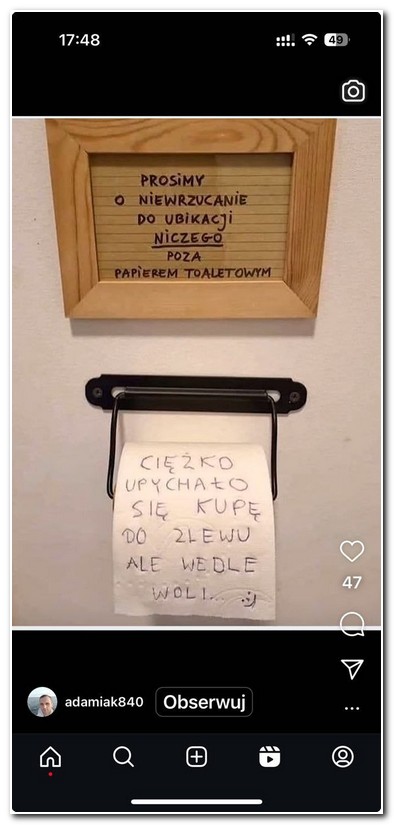 17:48
49
PROSIMY
O NIEWRZUCANIE
DO UBIKACJI
NICZEGO
POZA
PAPIEREM TOALETOWYM
CIĘŻKO
UPYCHAŁO
SIĘ KUPĘ
DO ZLEWU
ALE WEDLE
WOLI... :)
47
adamiak840
Obserwuj